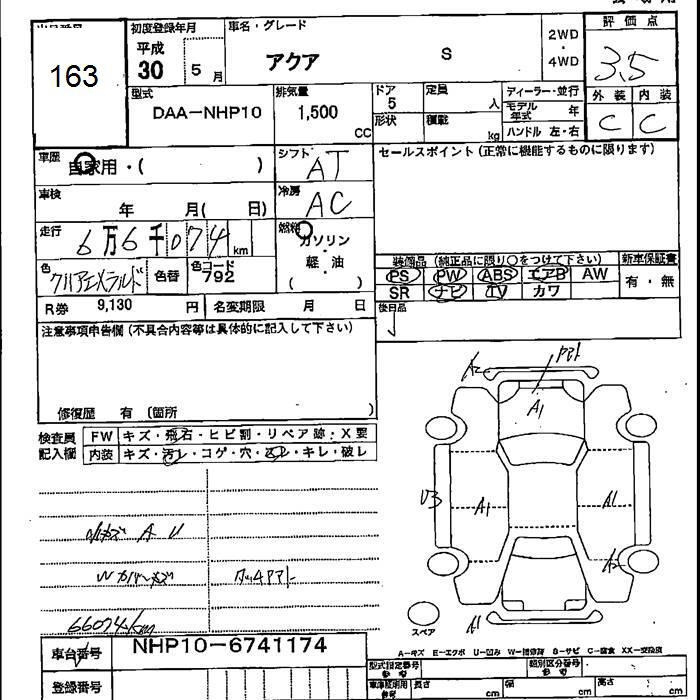 163
初度登録年月
平成
30 5 月
車名・グレード
アクア S
2WD
・
4WD
評価点
3.5
型式
DAA-NHP10
排気量
1,500
CC
ドア
5
定員
人
形状
積載
kg
ディーラー・並行
モデル年式 年
ハンドル 左・右
外装 内装
C C
車歴
自家用・( )
シフト
AT
車検
年 月( 日)
冷房
AC
走行
6万6千074 km
燃料
ガソリン
・
軽・油
( )
色
クリアエメラルド
色替
色コード
792
R券 9,130 円
名変期限 月 日
セールスポイント(正常に機能するものに限ります)
装備品 (純正品に限り○をつけて下さい)
PS PW ABS エアB AW
SR ナビ TV カワ
新車保証書
有・無
後日品
注意事項申告欄(不具合内容等は具体的に記入して下さい)
修復歴 有 (箇所 )
検査員
記入欄
FW キズ・飛石・ヒビ割・リペア跡・X要
内装 キズ・汚レ・コゲ・穴・スレ・キレ・破レ
A2
A1
U3
A1
A1
A2
A1
スペア
66074km
車台番号
NHP10-6741174
登録番号
A-キズ E-エクボ U-凹み W-補修跡 S-サビ C-腐食 XX-交換済
型式指定番号
類別区分番号
長さ cm
幅 cm
高さ cm